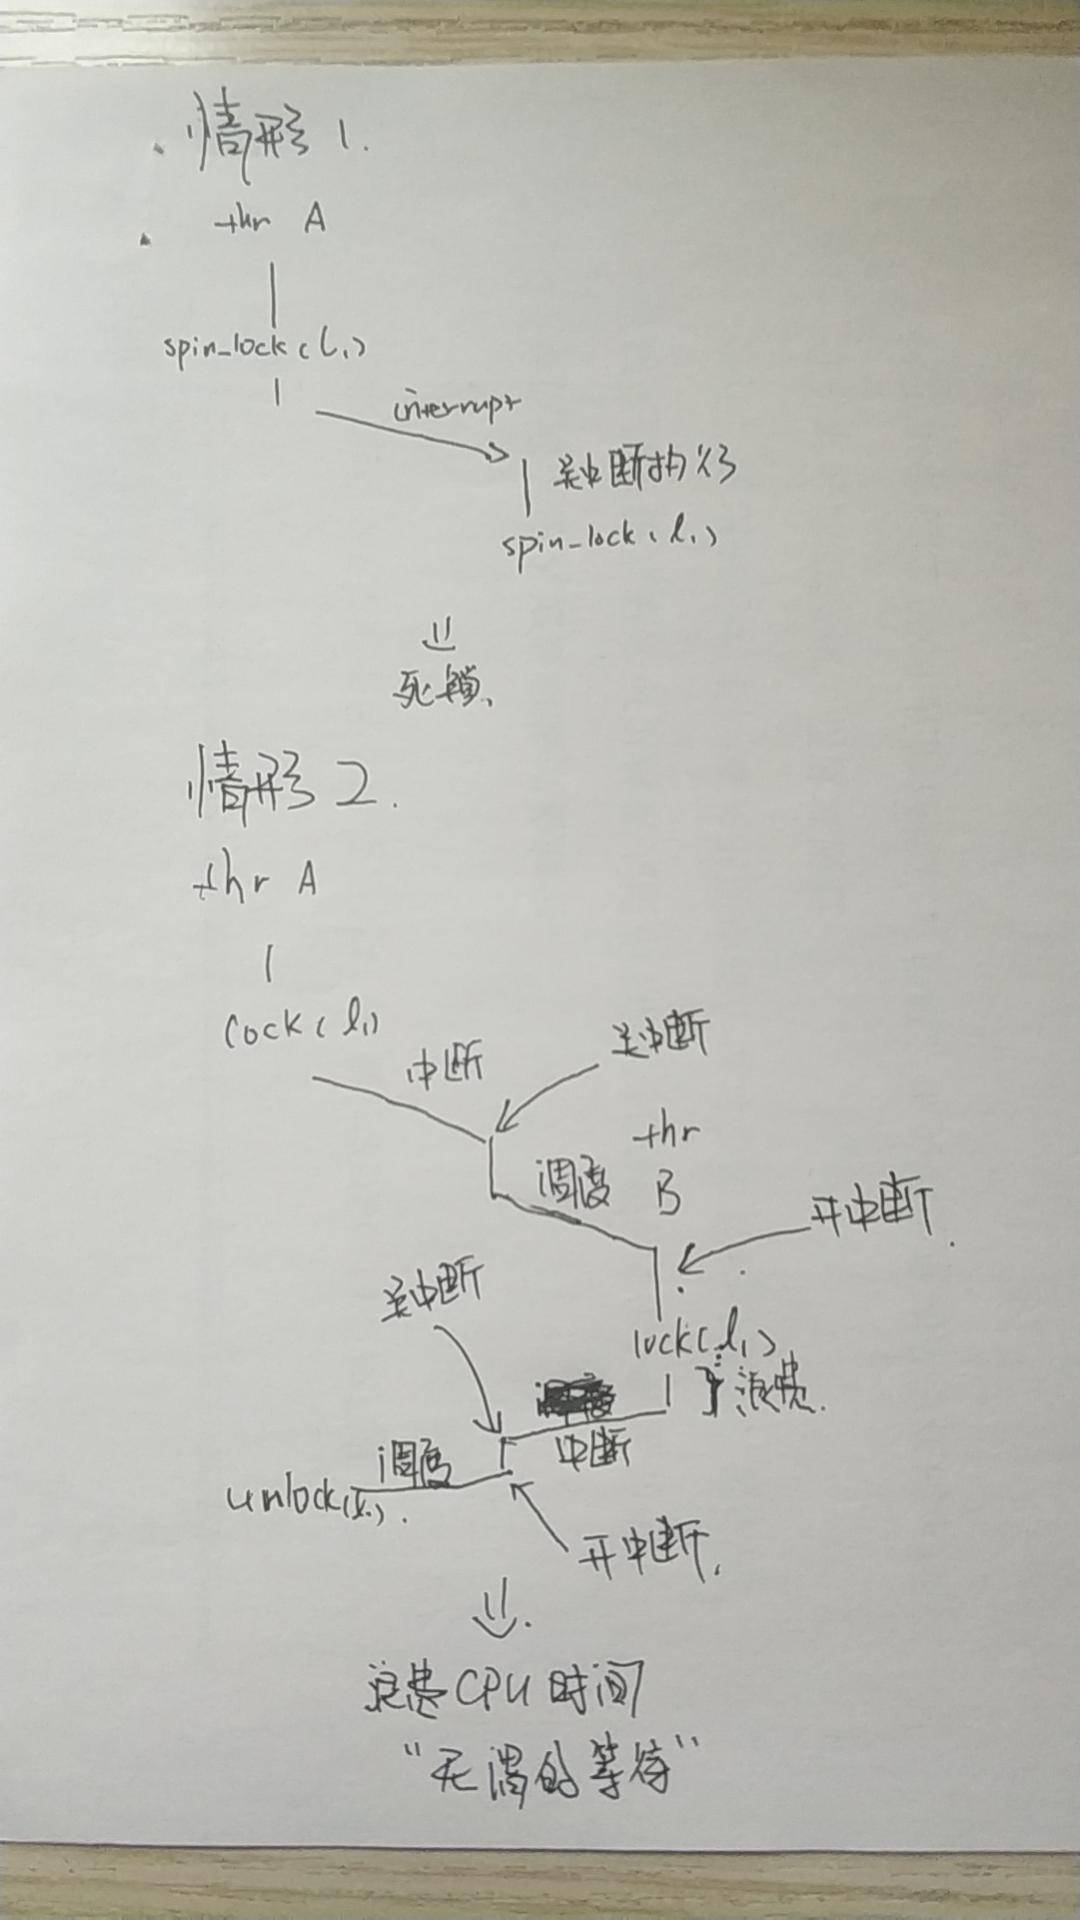 情形 1.
thr A
spin_lock(l₁)
interrupt
关中断的
spin_lock(l₁)
死锁.
情形 2.
thr A
lock(l₁)
中断
关中断
thr
调度 B
开中断.
关中断
lock(l₁)
浪费.
中断
调度
unlock(l₁).
开中断.
浪费 CPU 时间
"无谓的等待"